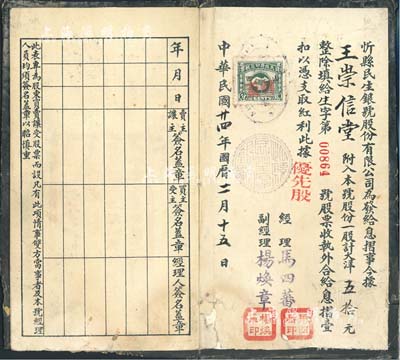 忻縣民生銀號股份有限公司為發給息摺事今據
王崇信堂附入本號股份一股計大洋五拾元
整除填給生字第00864號股票收執外合給息摺壹
扣以憑支取紅利此據
優先股
經理馬四蕃
副經理楊煥章
中華民國廿四年國曆二月十五日
年月日
賣主讓主簽名蓋章
買主受主簽名蓋章
經理人簽名蓋章
此表專為股東買賣讓受股票而設凡有此項情事雙方當事者及本號經理
人員均須簽名蓋章以昭慎重